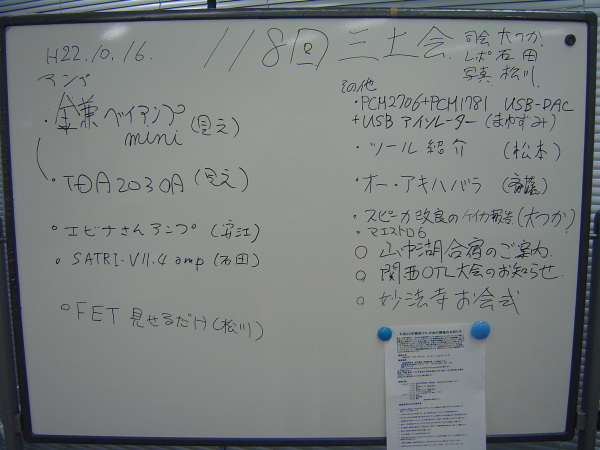 H22.10.16.
118回 三土会
司会 大つか
レポ 石田
写真 松川
アンプ
・金兼ベイアンプ
mini (見え)
・TDA2030A (見え)
・エビナさんアンプ (安江)
・SATRI-V11.4 amp (石田)
○FET 見せるだけ (松川)
その他
・PCM2706+PCM1781 USB-DAC
+USB アイソレーター (まゆずみ)
・ツール紹介 (松本)
・オー・アキハバラ (斎藤)
・スピーカ改良の 報告 (大つか)
・マエストロ6
○山中湖合宿のご案内.
○関西OTL大会のお知らせ.
○妙法寺お会式